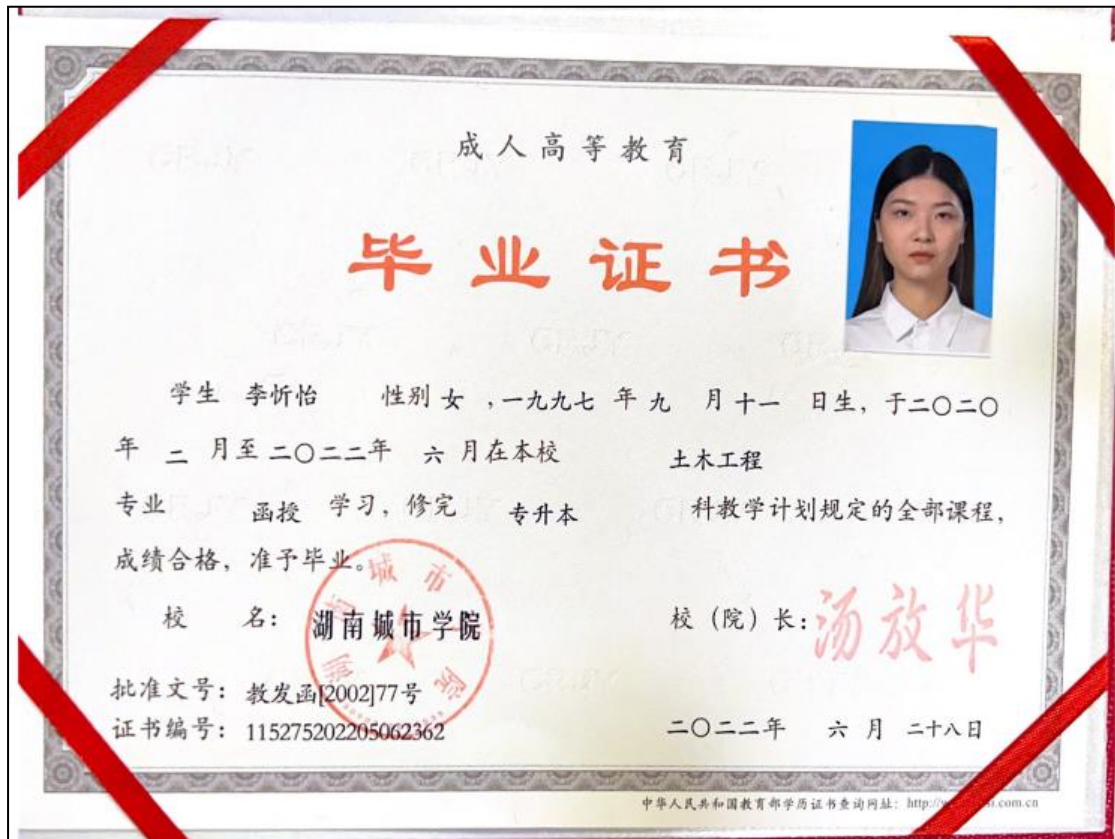 成人高等教育
毕业证书
学生 李忻怡 性别 女 ，一九九七 年 九 月 十一 日生，于二〇二〇
年 二 月至 二〇二二年 六 月在本校 土木工程
专业 函授 学习，修完 专升本 科教学计划规定的全部课程，
成绩合格，准予毕业。
校 名：湖南城市学院
湖南城市学院
校（院）长：汤放华
批准文号：教发函[2002]77号
证书编号：115275202205062362
二〇二二年 六 月 二十八日
中华人民共和国教育部学历证书查询网址：http://
.com.cn